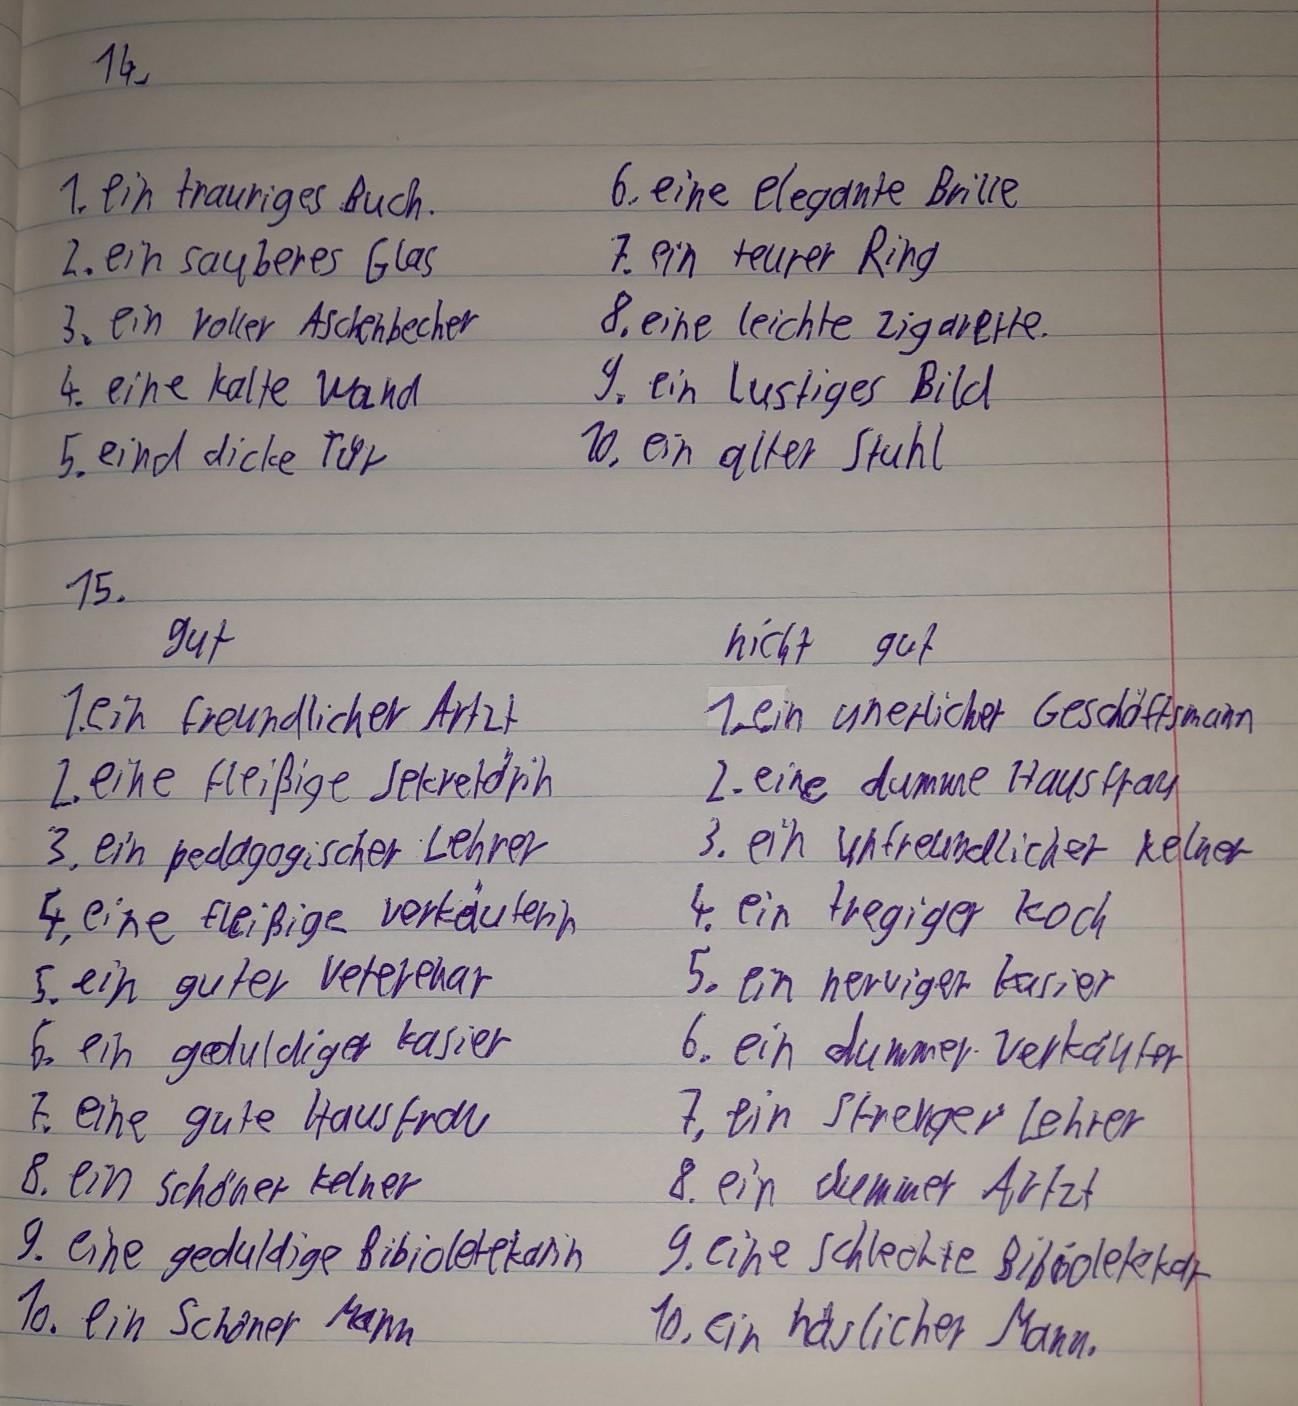 14.
1. ein trauriges Buch.
2. ein sauberes Glas
3. ein voller Aschenbecher
4. eine kalte Wand
5. eind dicke Tür
6. eine elegante Brille
7. ein teurer Ring
8. eine leichte Zigarette.
9. ein lustiges Bild
10. ein alter Stuhl
15.
gut
1. ein freundlicher Artzt
2. eine fleißige Sekretärin
3. ein pedagogischer Lehrer
4, eine fleißige verkäuferin
5. ein guter Veterenar
6. ein geduldiger kasier
7. eine gute Hausfrau
8. ein schöner kelner
9. eine geduldige Bibioletekarin
10. ein Schöner Mann
nicht gut
1. ein unerlicher Geschäftsmann
2. eine dumme Hausfrau
3. ein unfreundlicher kelner
4. ein tregiger Koch
5. ein nerviger kasier
6. ein dummer Verkäufer
7, ein strenger Lehrer
8. ein dummer Artzt
9. eine schlechte Bibioletekar
10. ein häslicher Mann.